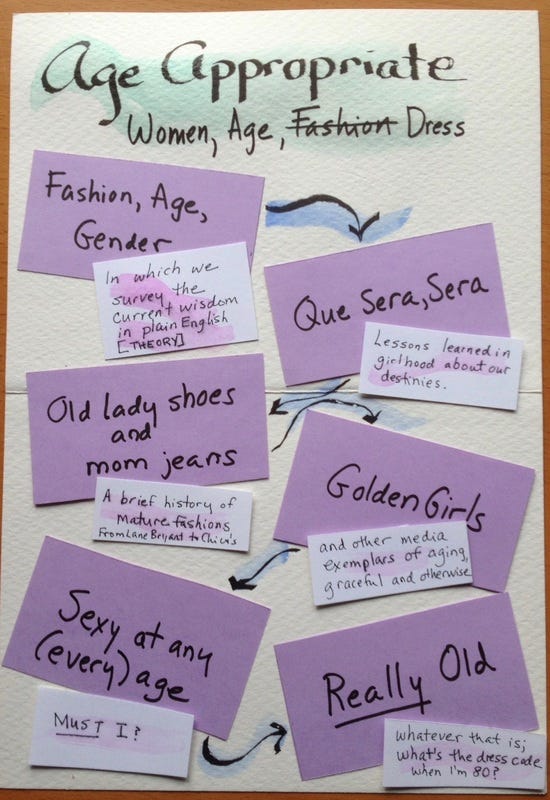 Age Appropriate
Women, Age, Fashion Dress
Fashion, Age,
Gender
In which we
survey the
current wisdom
in plain English
[THEORY]
Que Sera, Sera
Lessons learned in
girlhood about our
destinies.
Old lady shoes
and
mom jeans
A brief history of
Mature fashions
From Lane Bryant to Chico's
Golden Girls
and other media
exemplars of aging,
graceful and otherwise
Sexy at any
(every) age
MUST I?
Really Old
whatever that is;
what's the dress code
when I'm 80?